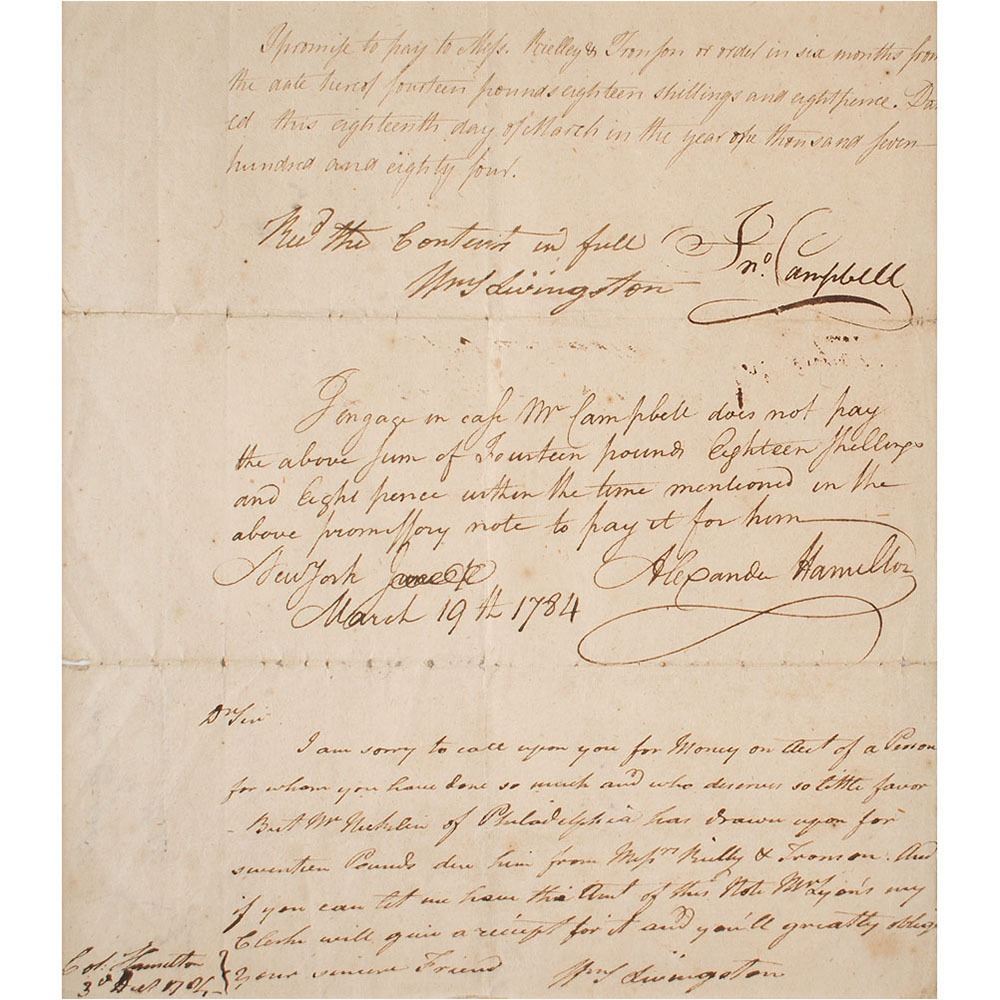 I promise to pay to Mess. Rielley & Tronson or order in six months from
the date hereof fourteen pounds eighteen shillings and eightpence. Dat
ed this eighteenth day of March in the year one thousand seven
hundred and eighty four.
Jno. Campbell
Recd the Contents in full
Wm S Livingston
I engage in case Mr Campbell does not pay
the above sum of Fourteen pounds Eighteen shillings
and Eight pence within the time mentioned in the
above promissory note to pay it for him
New York
Alexander Hamilton
March 19th 1784
Dr Sir
I am sorry to call upon you for Money on Acct of a Person
for whom you have done so much and who deserves so little favor
- But Mr Nicklin of Philadelphia has drawn upon for
seventeen Pounds due him from Messrs Rielly & Tronson. And
if you can let me have the Amt of this Note Mr Lyons my
Clerk will give a receipt for it and you'll greatly oblige
Your sincere Friend
Wm S Livingston
Col. Hamilton
3d 1784